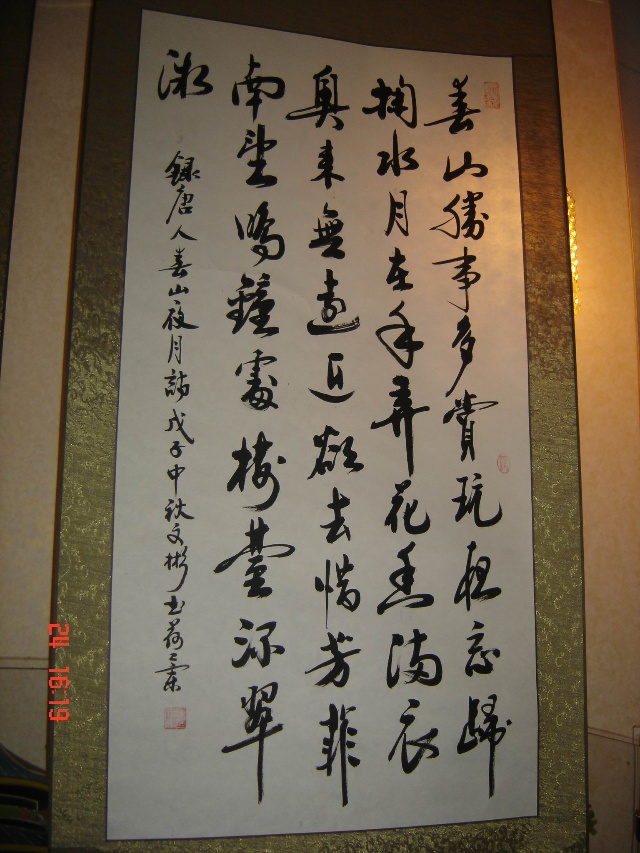 春山勝事多賞玩夜忘歸
掬水月在手弄花香滿衣
興來無遠近欲去惜芳菲
南望鳴鐘處樓臺深翠
微
錄唐人春山夜月詩戊子中秋文彬書
24 16:19